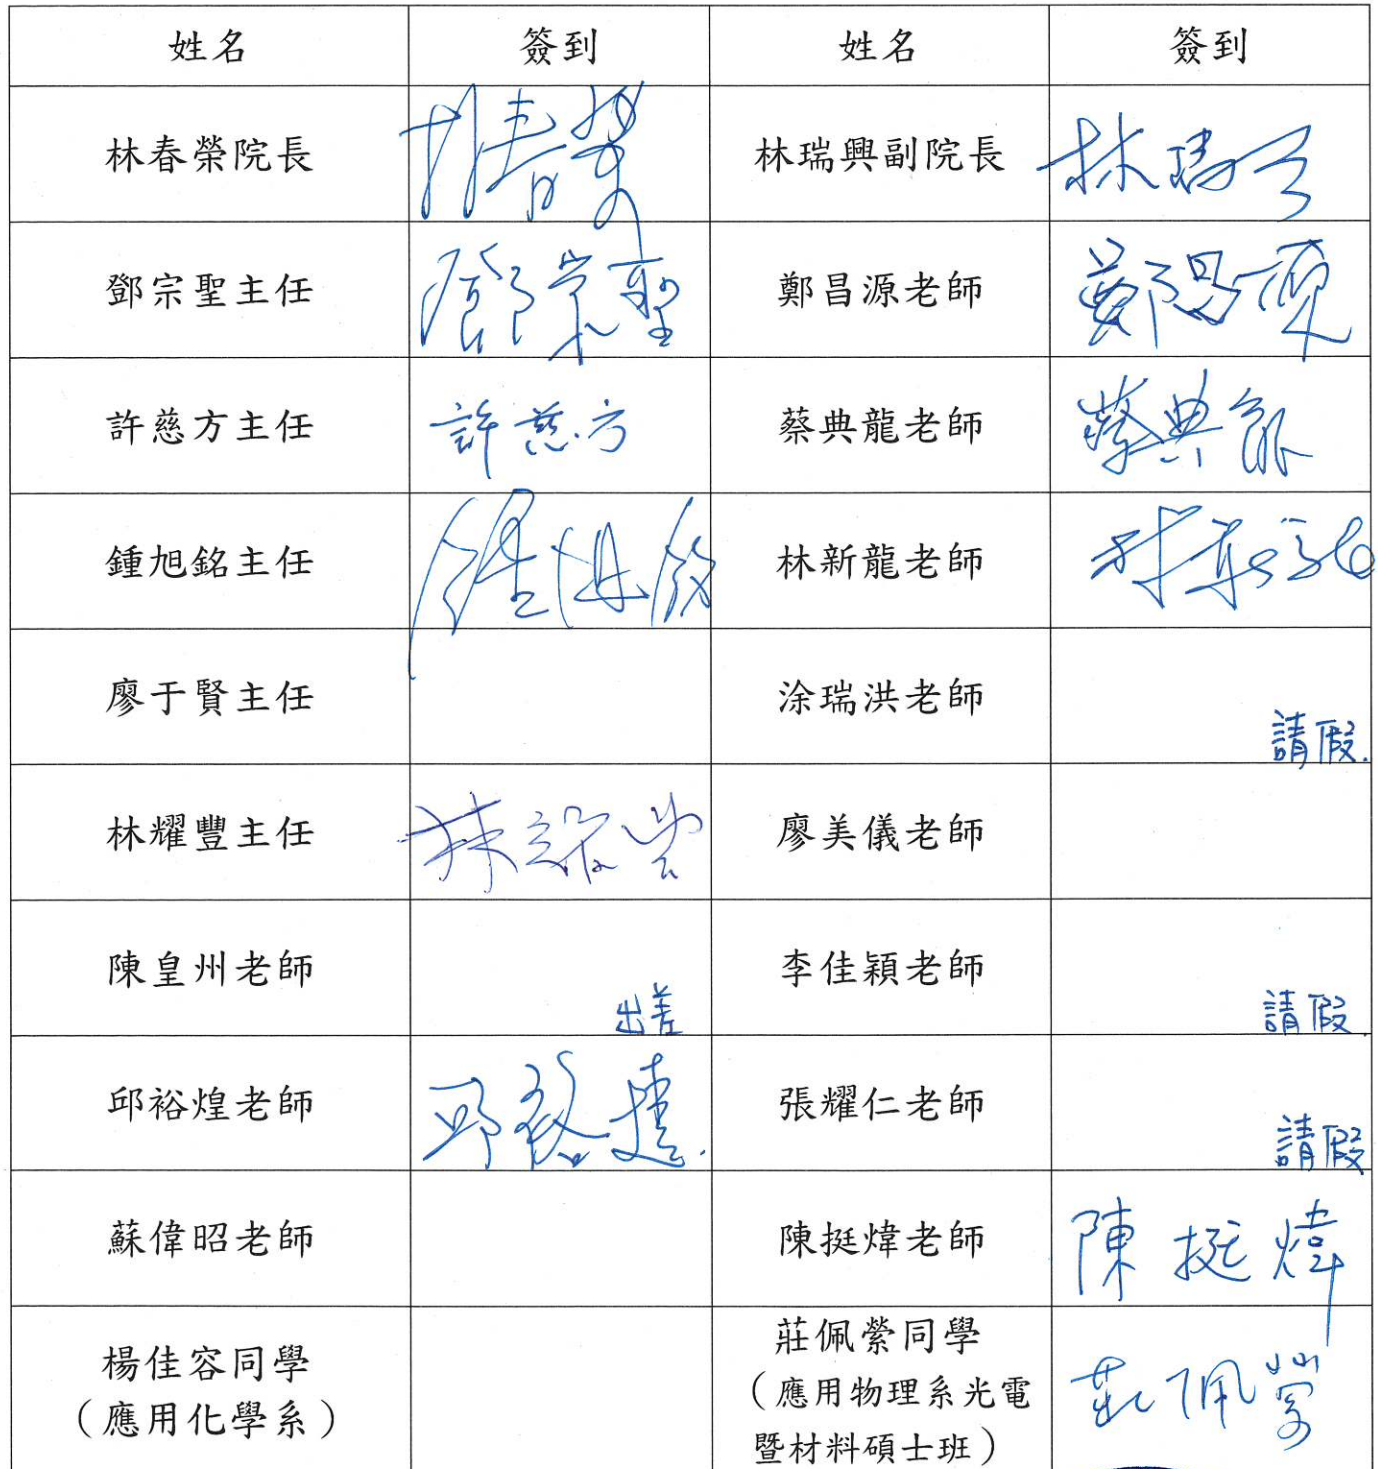 姓名 簽到 姓名 簽到
林春榮院長 林春榮 林瑞興副院長 林瑞興
鄧宗聖主任 鄧宗聖 鄭昌源老師 鄭昌源
許慈方主任 許慈方 蔡典龍老師 蔡典龍
鍾旭銘主任 鍾旭銘 林新龍老師 林新龍
廖于賢主任 涂瑞洪老師 請假.
林耀豐主任 林耀豐 廖美儀老師
陳皇州老師 出差 李佳穎老師 請假
邱裕煌老師 邱裕煌 張耀仁老師 請假
蘇偉昭老師 陳挺煒老師 陳挺煒
楊佳容同學
(應用化學系)
莊佩縈同學
(應用物理系光電
暨材料碩士班)
莊佩縈